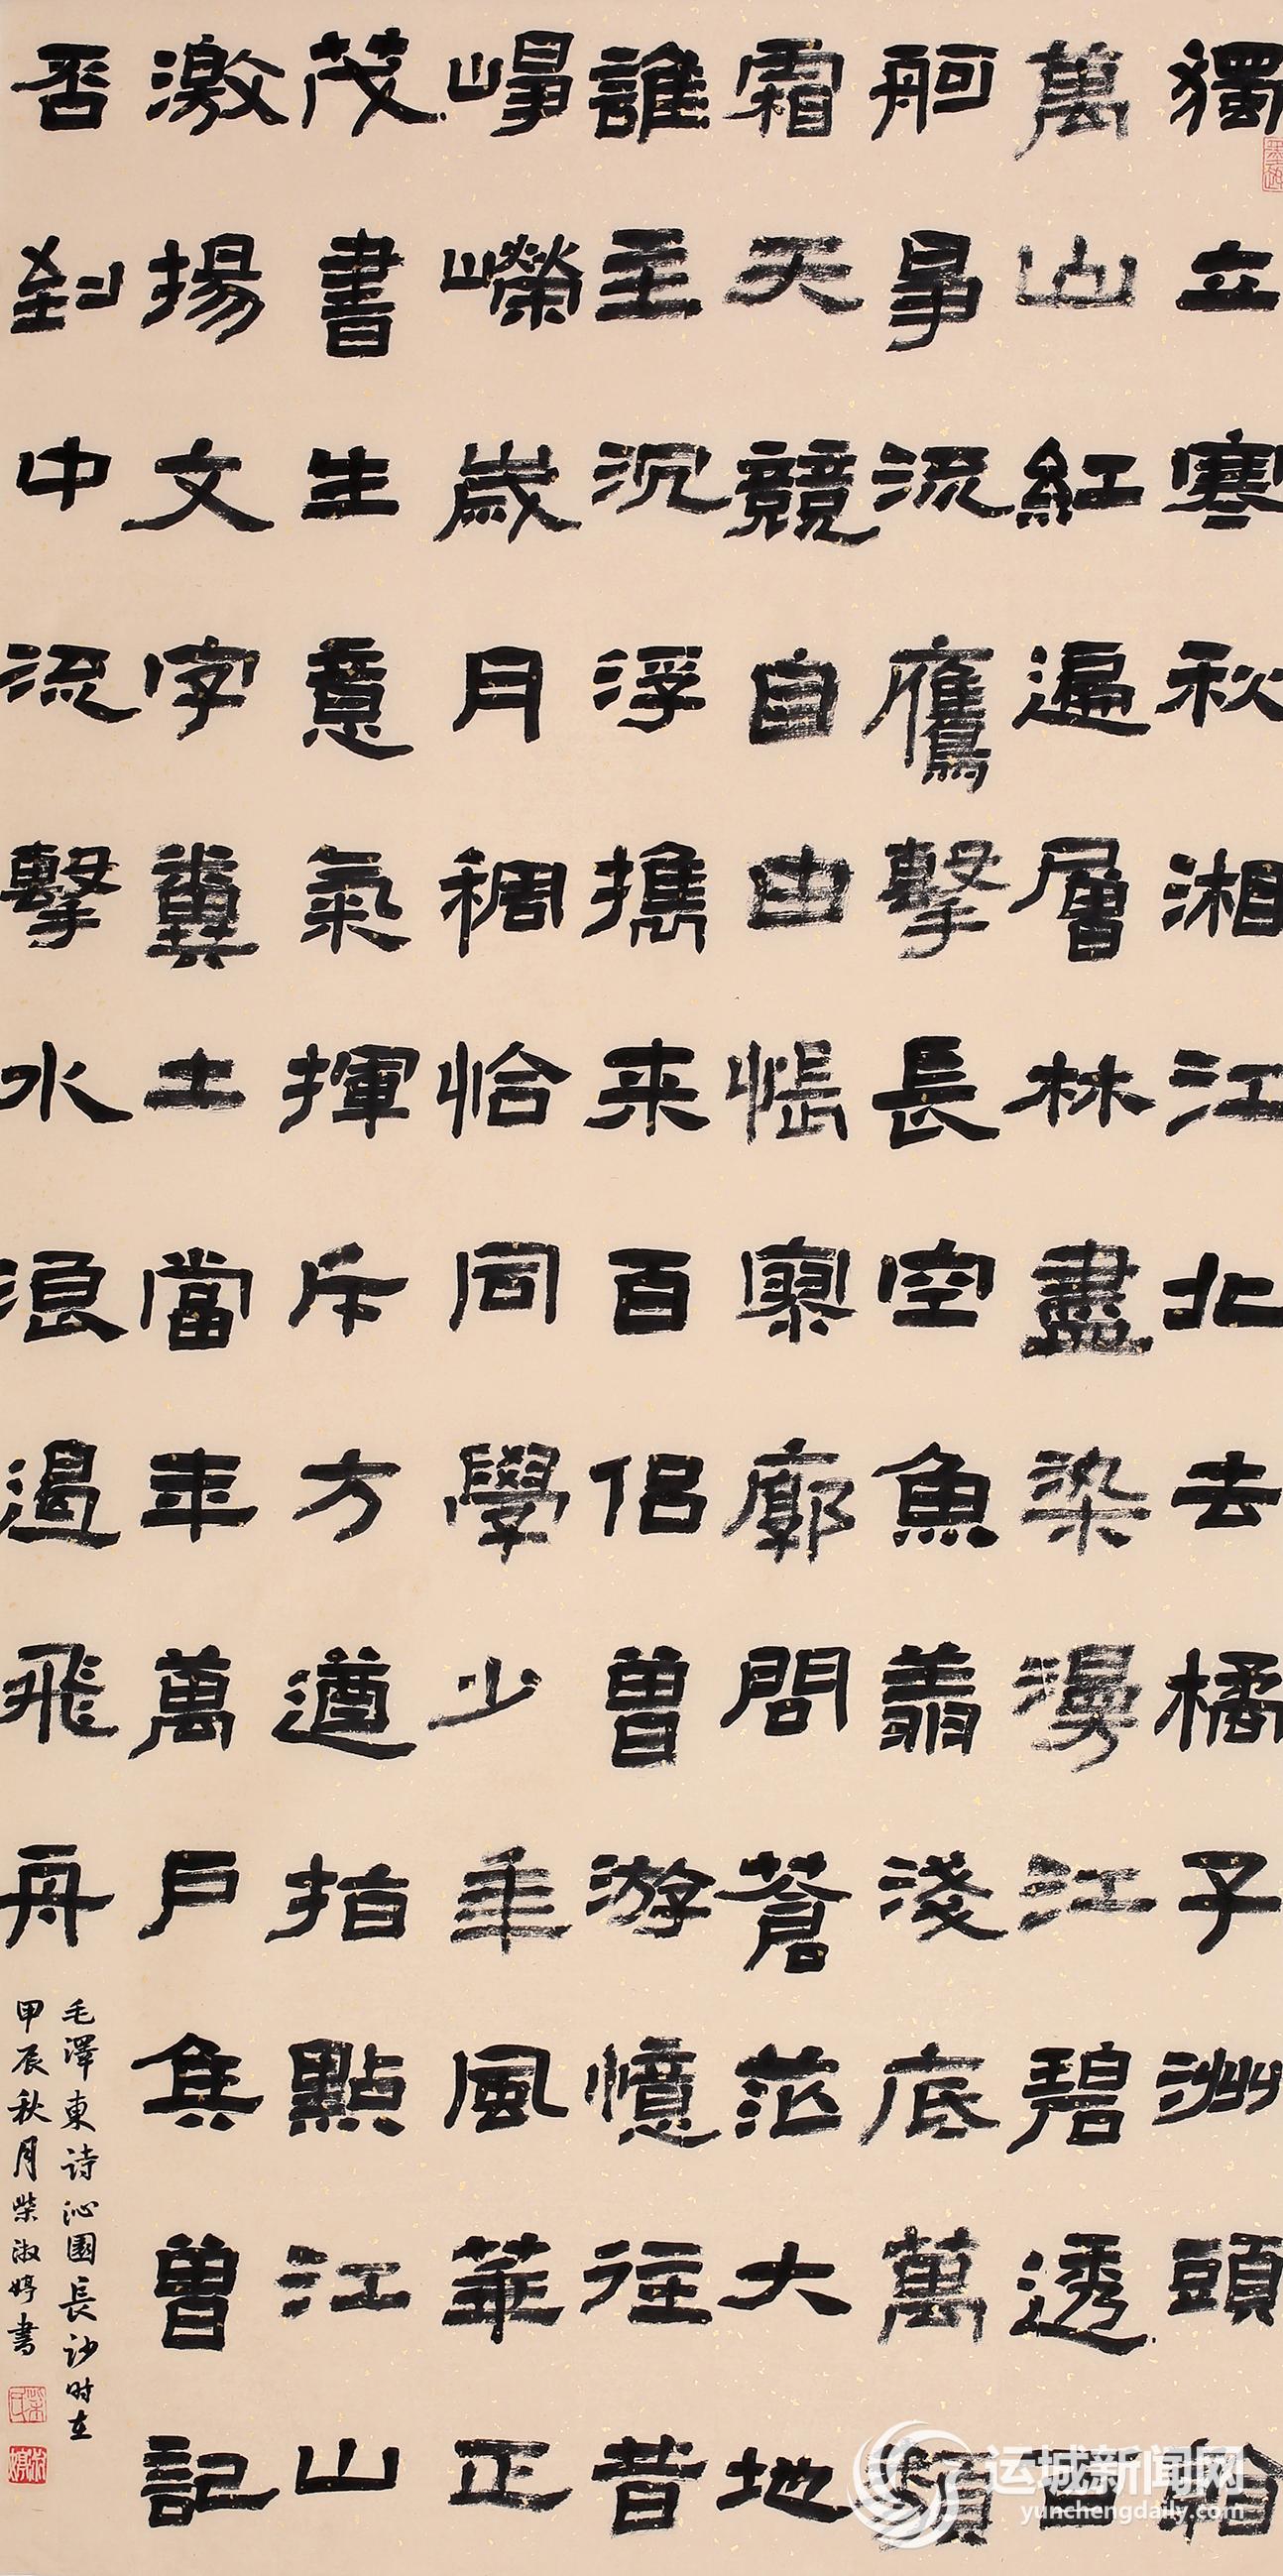 獨立寒秋湘江北去橘子洲頭看
萬山紅遍層林盡染漫江碧透百
舸爭流鷹擊長空魚翔淺底萬類
霜天競自由悵寥廓問蒼茫大地
誰主沉浮攜来百侶曾游憶往昔
崢嶸歲月稠恰同學少年風華正
茂書生意氣揮斥方遒指點江山
激揚文字糞土當年萬戶矦曾記
否到中流擊水浪遏飛舟
毛澤東诗沁園長沙时在
甲辰秋月柴淑婷書
运城新闻网
yunchengdaily.com